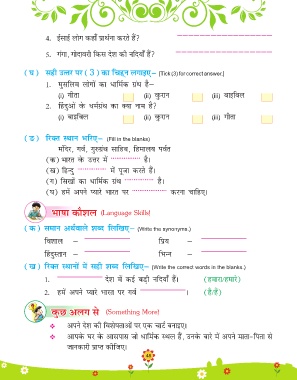 4. ईसाई लोग कहाँ प्रार्थना करते हैं?
5. गंगा, गोदावरी किस देश की नदियाँ हैं?
(घ) सही उत्तर पर (3) का चिह्न लगाइए– [Tick (3) for correct answer.]
1. मुसलिम लोगों का धार्मिक ग्रंथ है–
(i) गीता (ii) कुरान (iii) बाइबिल
2. हिंदुओं के धर्मग्रंथ का क्या नाम है?
(i) बाइबिल (ii) कुरान (iii) गीता
(ङ) रिक्त स्थान भरिए– (Fill in the blanks)
मंदिर, गर्व, गुरुग्रंथ साहिब, हिमालय पर्वत
(क) भारत के उत्तर में ............ है।
(ख) हिन्दू ............ में पूजा करते हैं।
(ग) सिखों का धार्मिक ग्रंथ ............ है।
(घ) हमें अपने प्यारे भारत पर ............ करना चाहिए।
भाषा कौशल (Language Skills)
(क) समान अर्थवाले शब्द लिखिए– (Write the synonyms.)
विशाल – प्रिय –
हिंदुस्तान – भिन्न –
(ख) रिक्त स्थानों में सही शब्द लिखिए– (Write the correct words in the blanks.)
1. ............ देश में कई बड़ी नदियाँ हैं। (हमारा/हमारे)
2. हमें अपने प्यारे भारत पर गर्व ............। (है/हैं)
कुछ अलग से (Something More)
❖ अपने देश की विशेषताओं पर एक चार्ट बनाइए।
❖ आपके घर के आसपास जो धार्मिक स्थल हैं, उनके बारे में अपने माता-पिता से
जानकारी प्राप्त कीजिए।